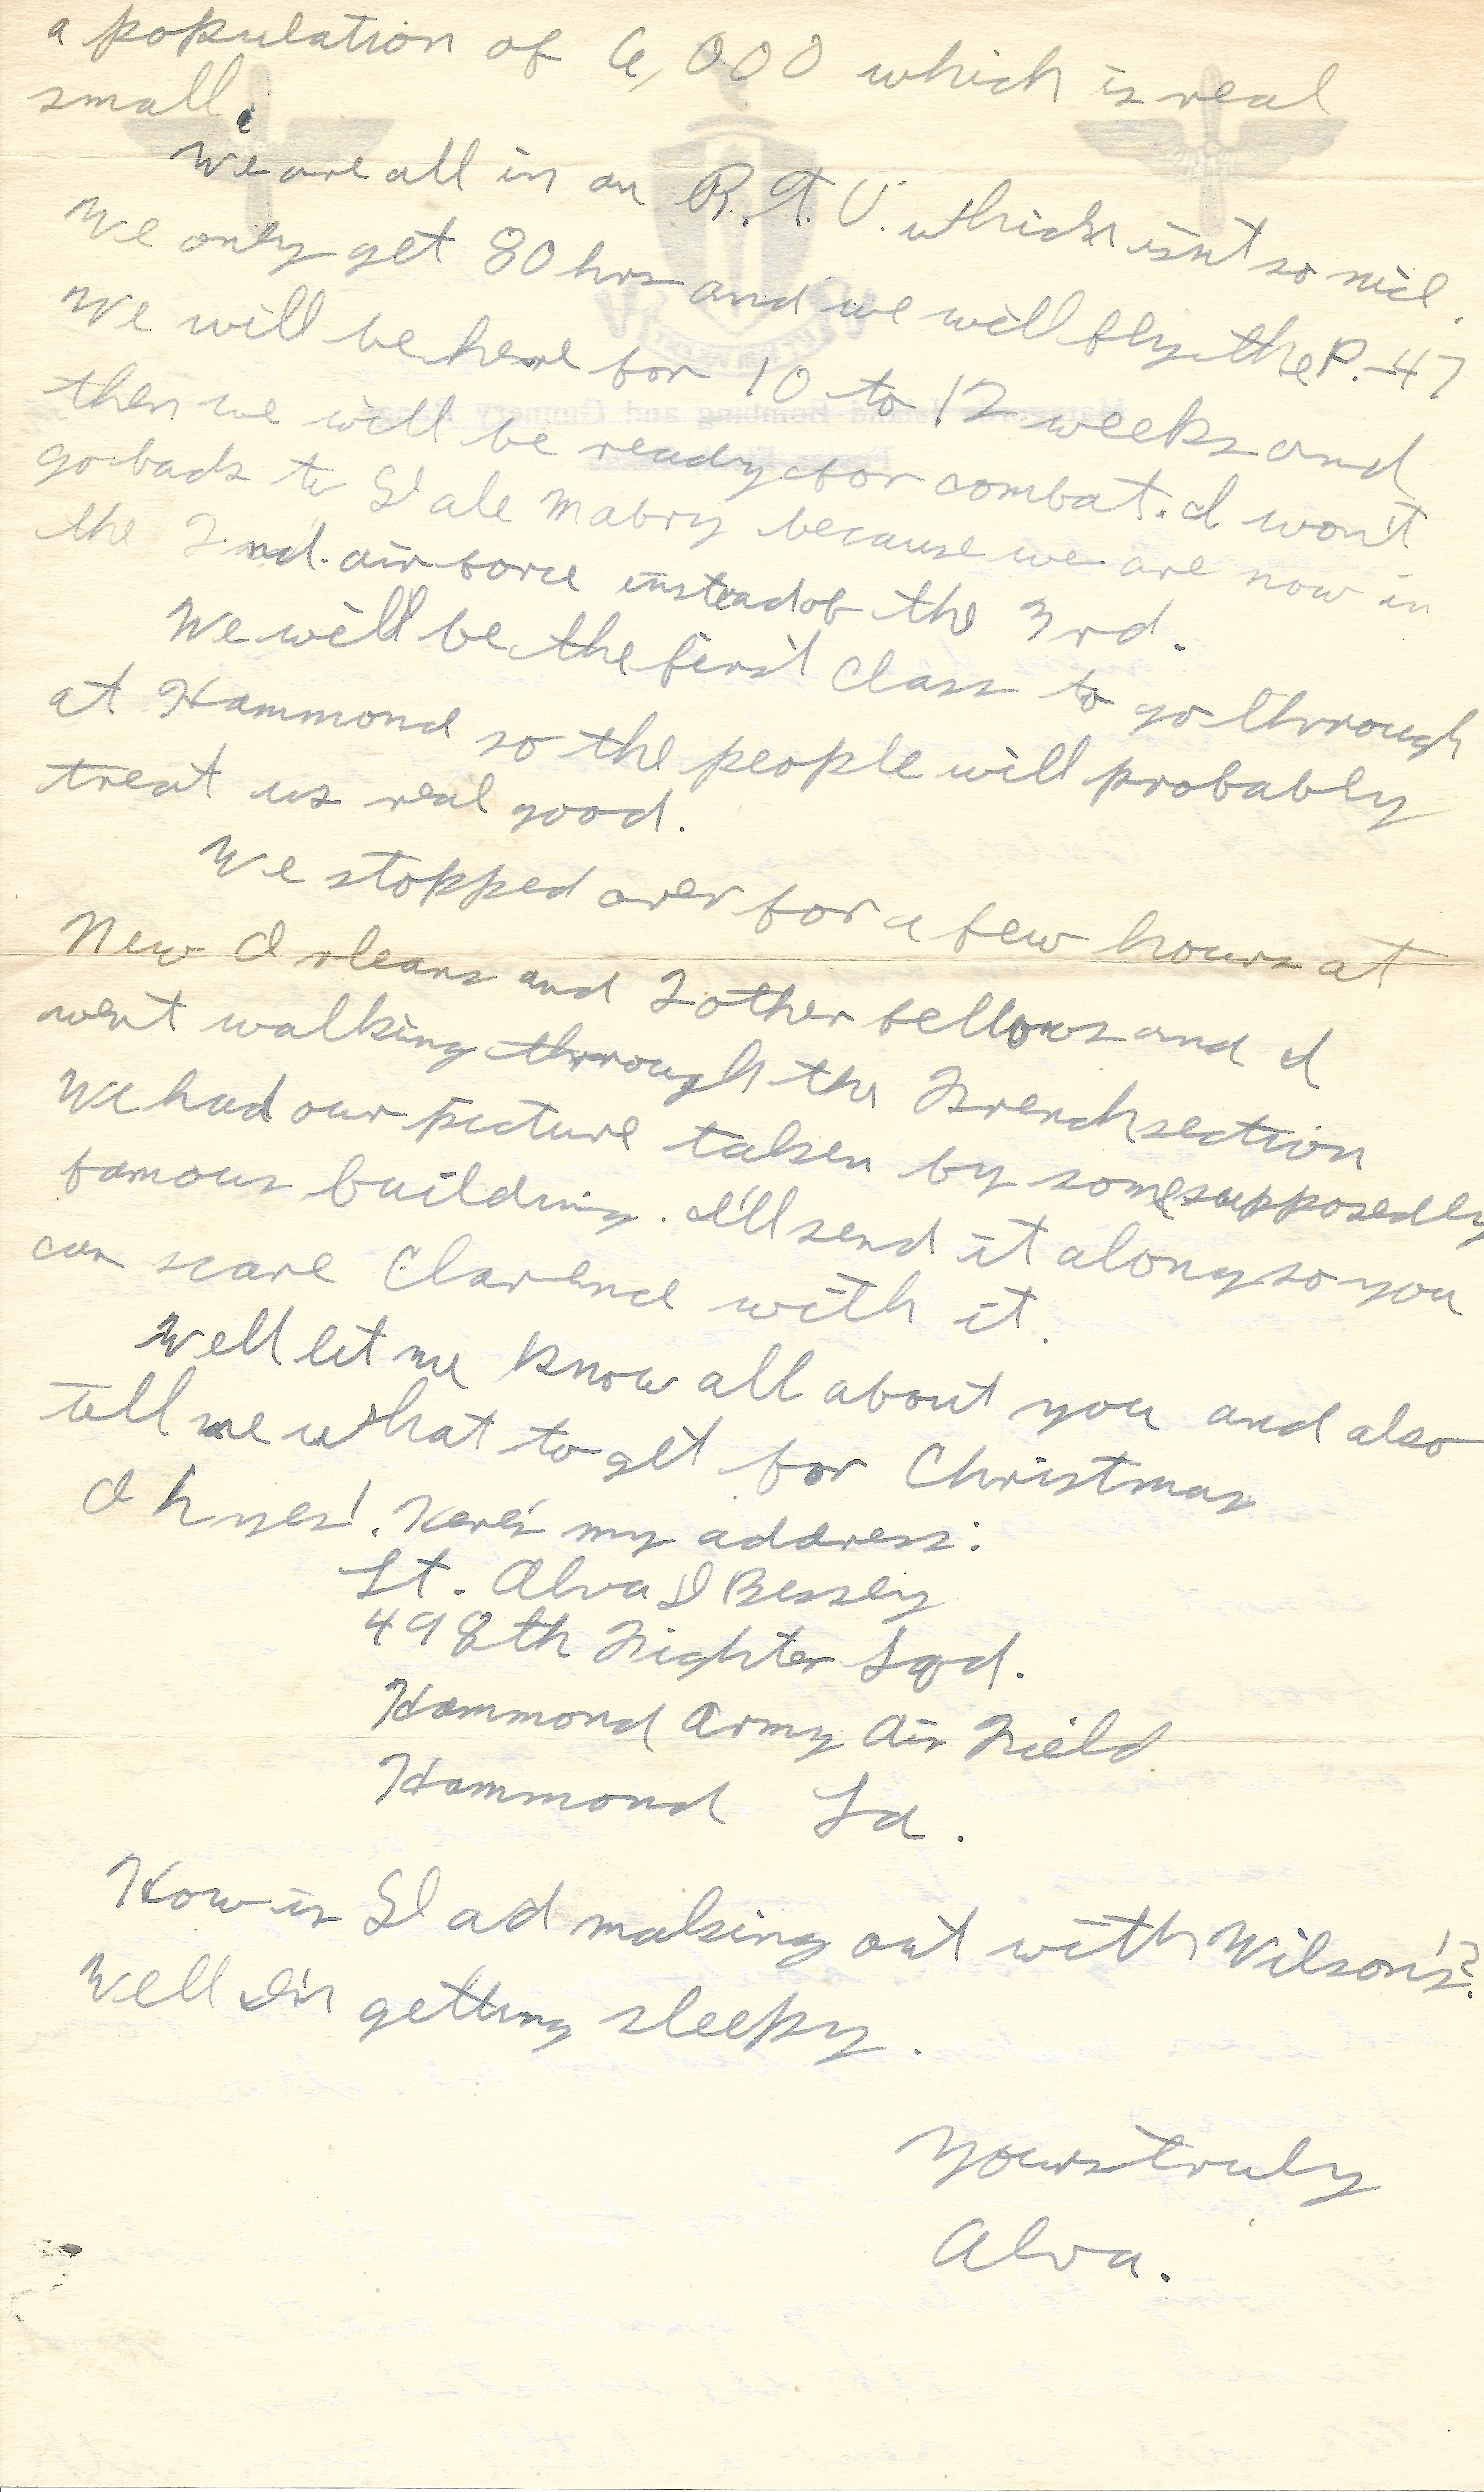 a population of 6,000 which is real
small.
We are all in an R.T.U. which isn't so nice.
We only get 80 hrs and we will fly the P.-47
We will be here for 10 to 12 weeks and
then we will be ready for combat. I won't
go back to Dale Mabry because we are now in
the 2nd. air force instead of the 3rd.
We will be the first class to go through
at Hammond so the people will probably
treat us real good.
We stopped over for a few hours at
New Orleans and 2 other fellows and I
went walking through the French section
We had our picture taken by some supposedly
famous building. I'll send it along so you
can scare Clarence with it.
Well let me know all about you and also
tell me what to get for Christmas
Oh yes!. Here's my address:
Lt. Alva D Bessey
498th Fighter Sqd.
Hammond Army Air Field
Hammond La.
How is Dad making out with Wilson's?
Well I'm getting sleepy.
Yours truly
Alva.